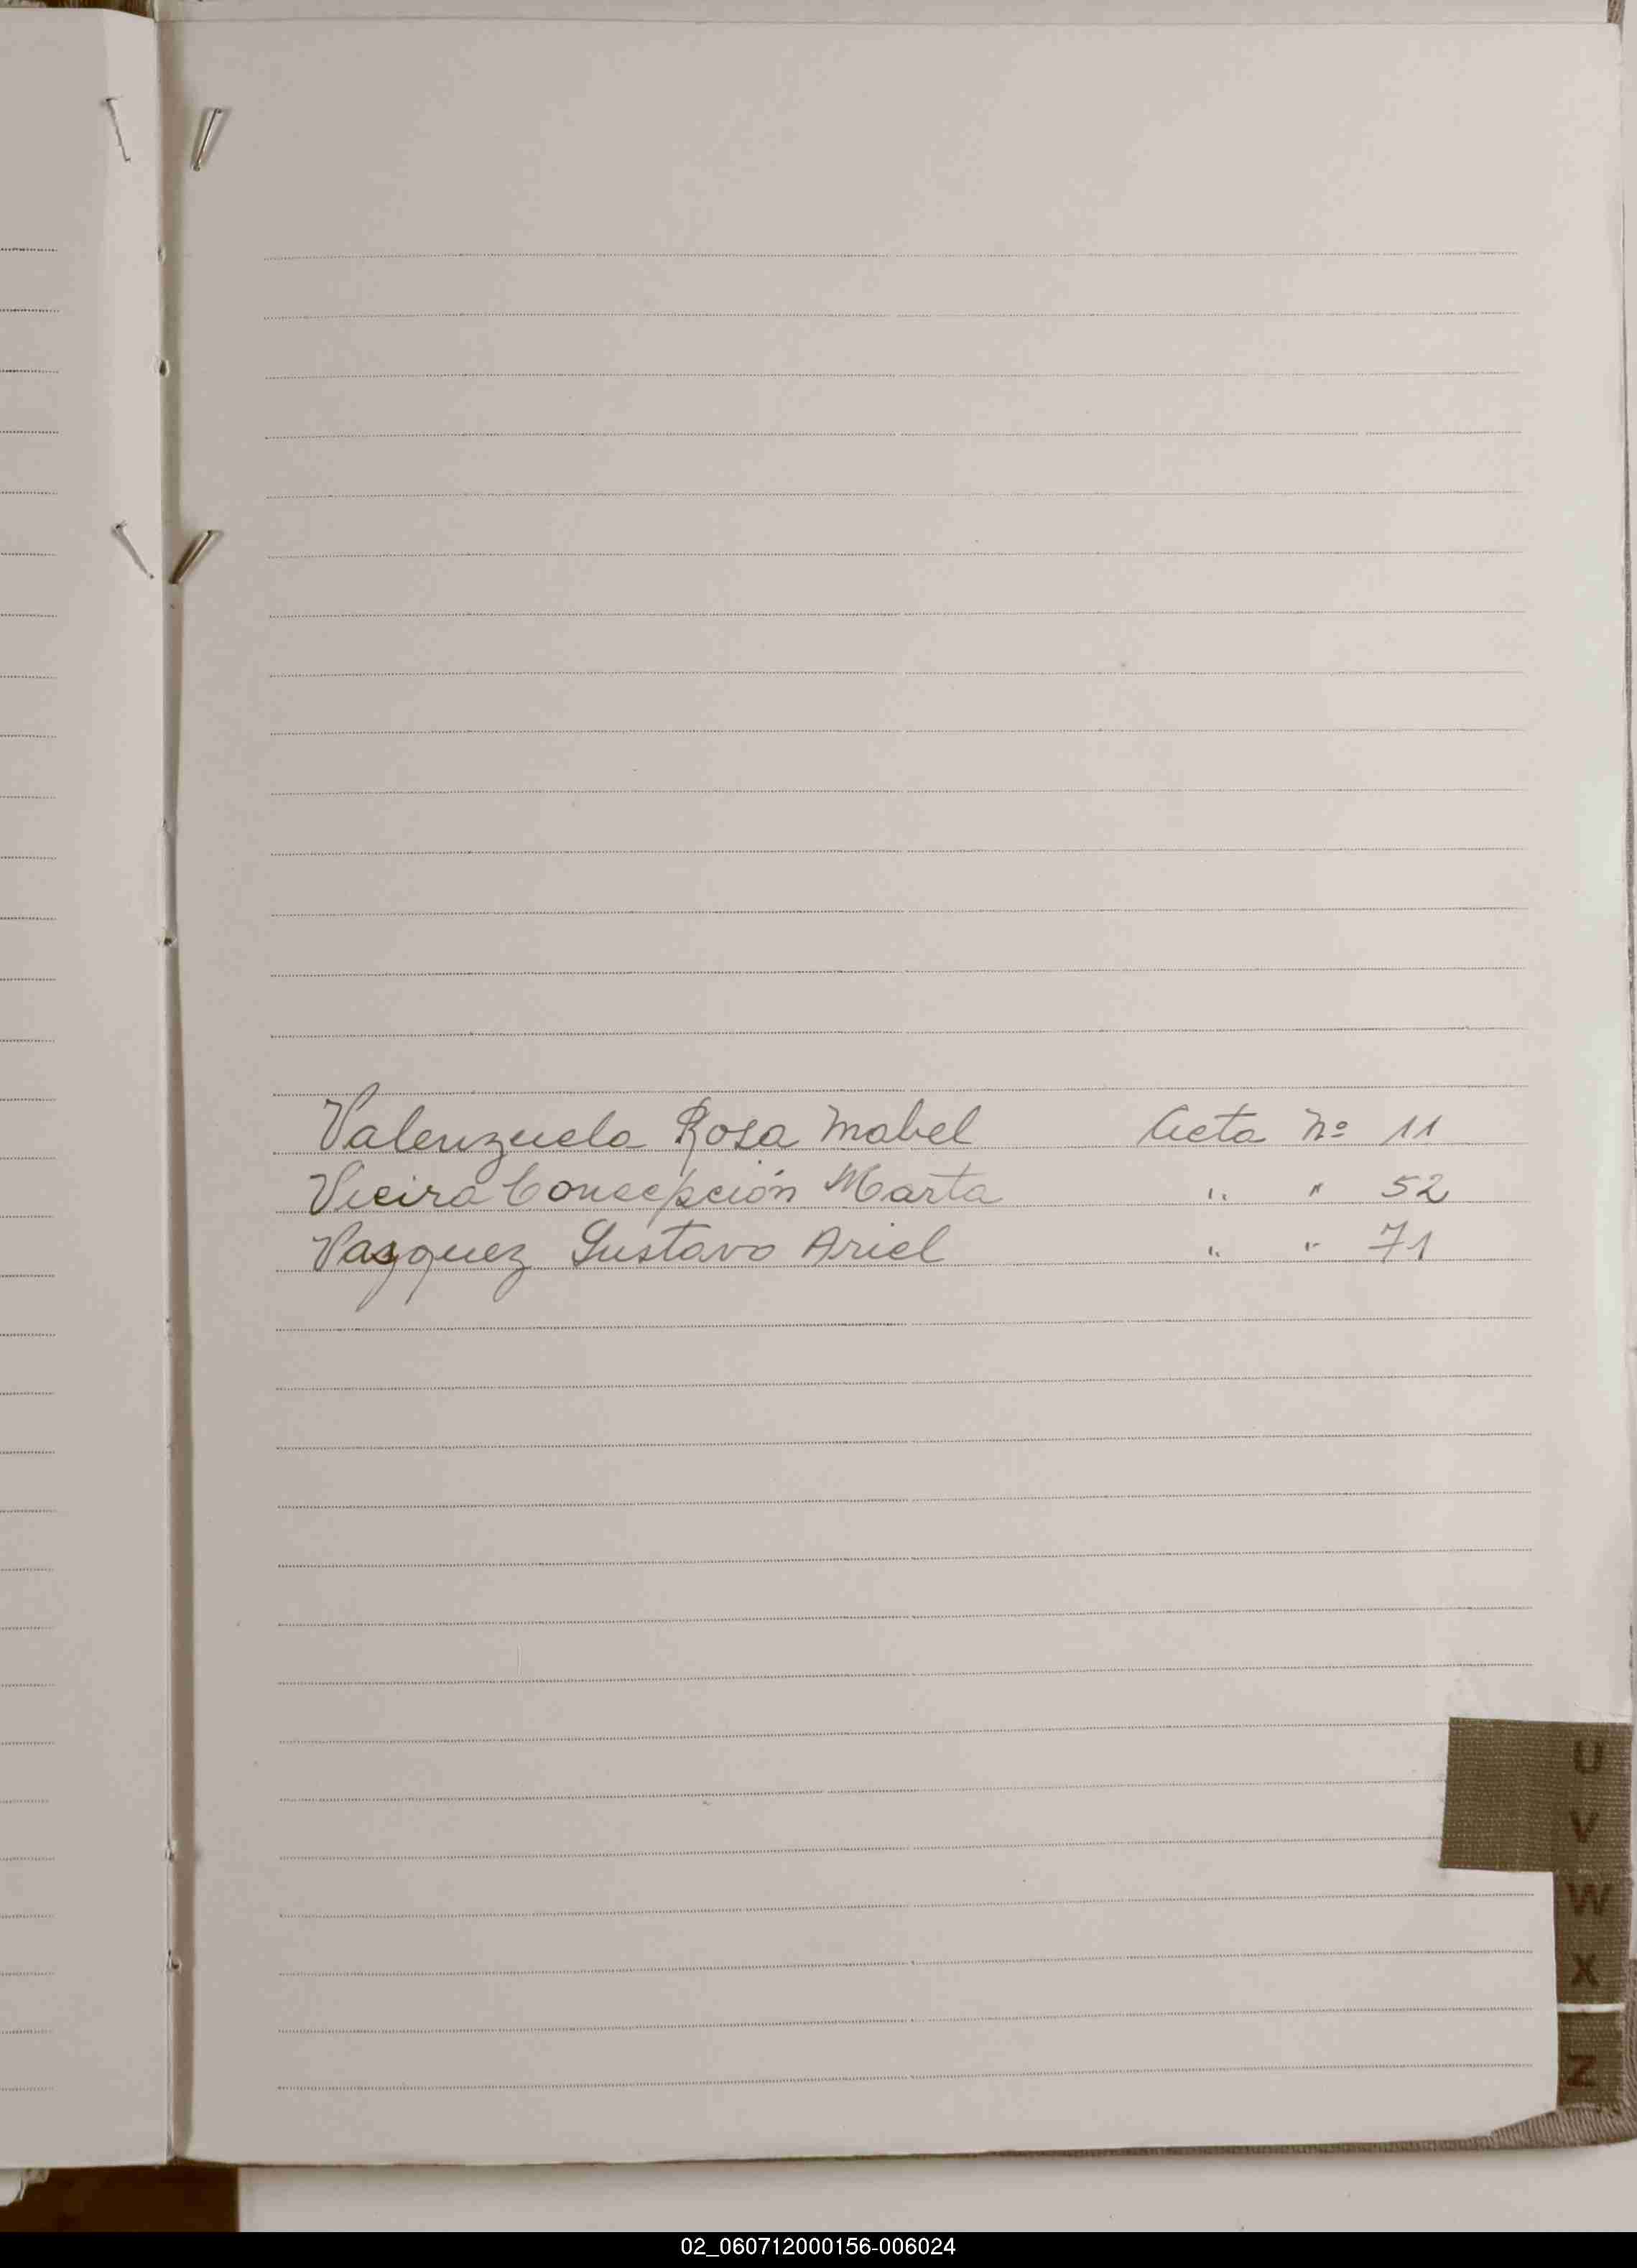 Valenzuela Rosa Mabel Acta Nº 11
Vieira Concepción Marta " " 52
Vazquez Gustavo Ariel " " 71
U
V
W
X
Z
02_060712000156-006024